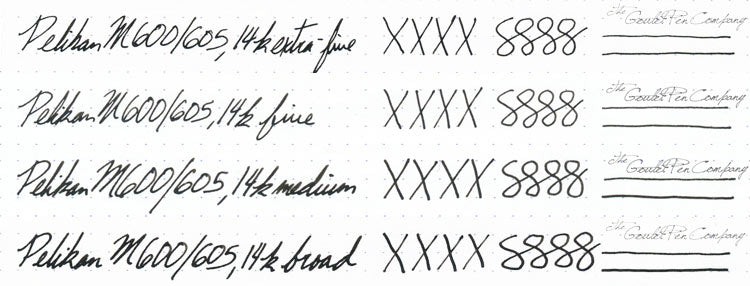 Pelikan M600/605, 14k extra-fine XXXX 8888 The Goulet Pen Company
Pelikan M600/605, 14k fine XXXX 8888 The Goulet Pen Company
Pelikan M600/605, 14k medium XXXX 8888 The Goulet Pen Company
Pelikan M600/605, 14k broad XXXX 8888 The Goulet Pen Company